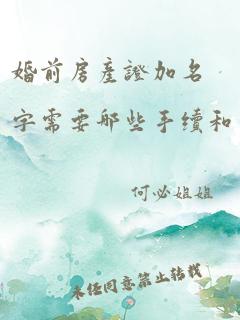 婚前房產證加名
字需要哪些手續和
何必姐姐
未经同意禁止转载